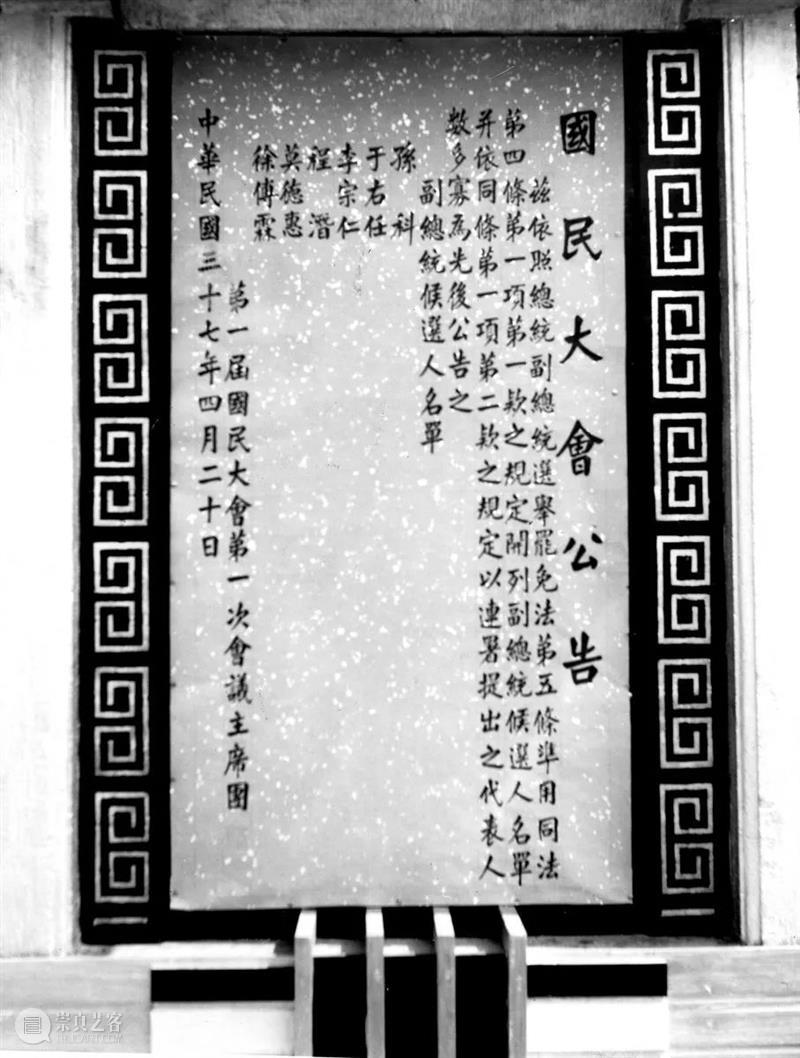 國民大會公告
茲依照總統副總統選舉罷免法第五條準用同法
第四條第一項第一欵之規定開列副總統候選人名單
并依同條第一項第二欵之規定以連署提出之代表人
數多寡為先後公告之
副總統候選人名單
孫科
于右任
李宗仁
程潛
莫德惠
徐傅霖
第一屆國民大會第一次會議主席團
中華民國三十七年四月二十日
崇真艺客